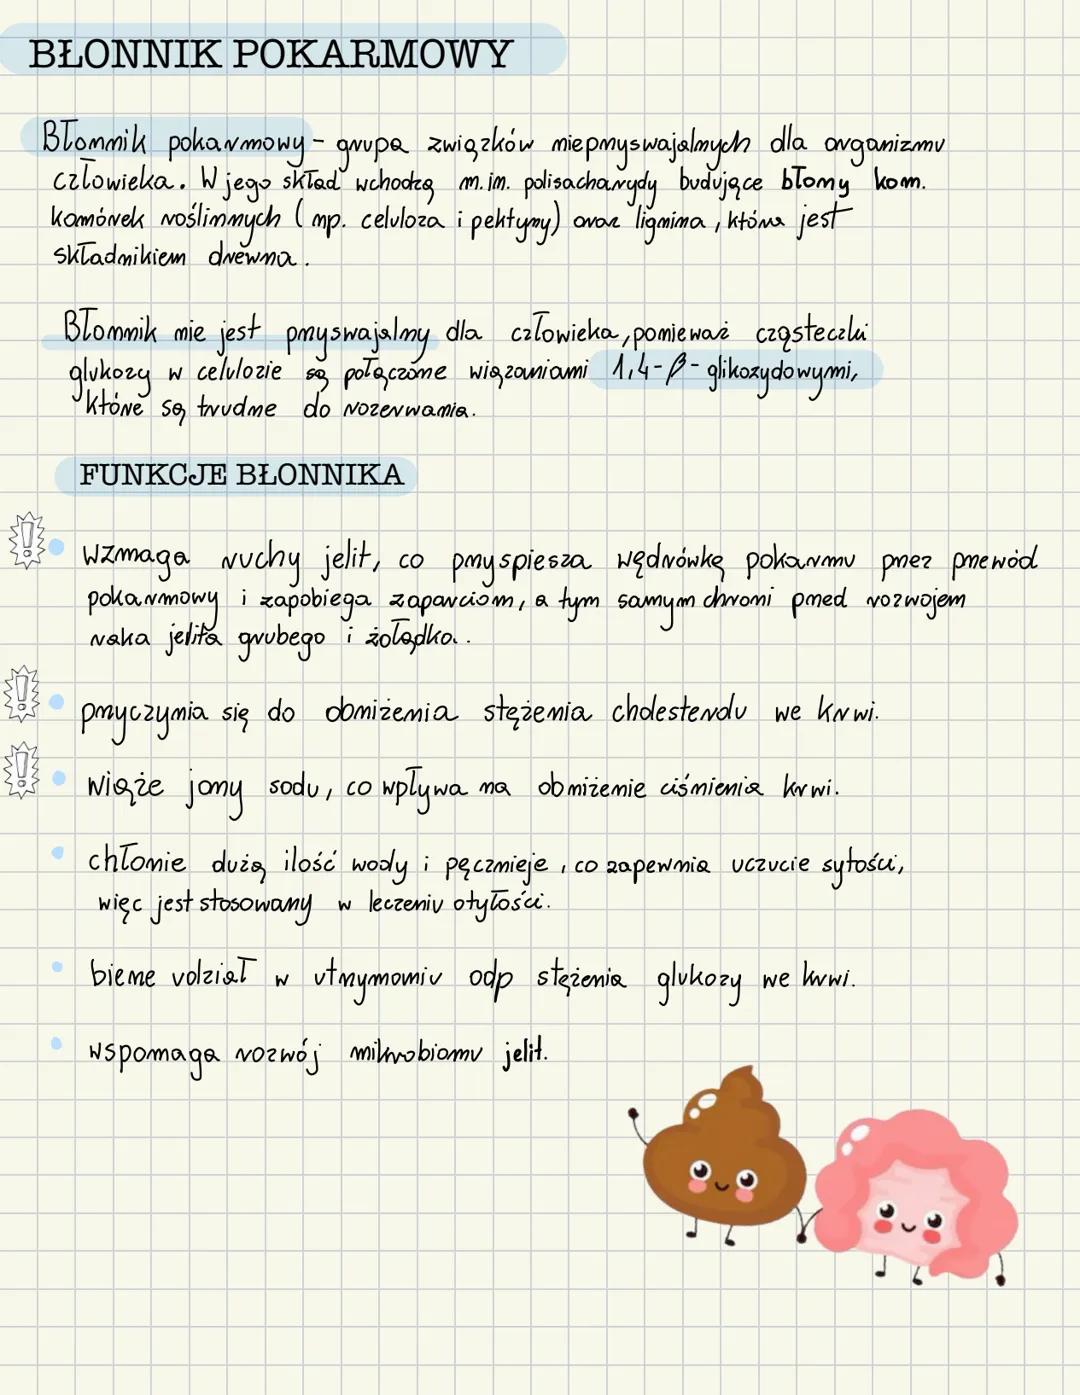 BŁONNIK POKARMOWY
Błonnik pokarmowy - grupa związków nieprzyswajalnych dla organizmu
człowieka. W jego skład wchodzą m.in. polisacharydy budujące błony kom.
komórek roślinnych (np. celuloza i pektyny) oraz lignina, która jest
składnikiem drewna.
Błonnik nie jest przyswajalny dla człowieka, ponieważ cząsteczki
glukozy w celulozie są połączone wiązaniami 1,4-β-glikozydowymi,
które są trudne do rozerwania.
FUNKCJE BŁONNIKA
wzmaga ruchy jelit, co przyspiesza wędrówkę pokarmu przez przewód
pokarmowy i zapobiega zaparciom, a tym samym chroni przed rozwojem
raka jelita grubego i żołądka.
przyczynia się do obniżenia stężenia cholesterolu we krwi.
wiąże jony sodu, co wpływa na obniżenie ciśnienia krwi.
chłonie dużą ilość wody i pęcznieje, co zapewnia uczucie sytości,
więc jest stosowany w leczeniu otyłości.
bierze udział w utrzymaniu odp stężenia glukozy we krwi.
wspomaga rozwój mikrobiomu jelit.